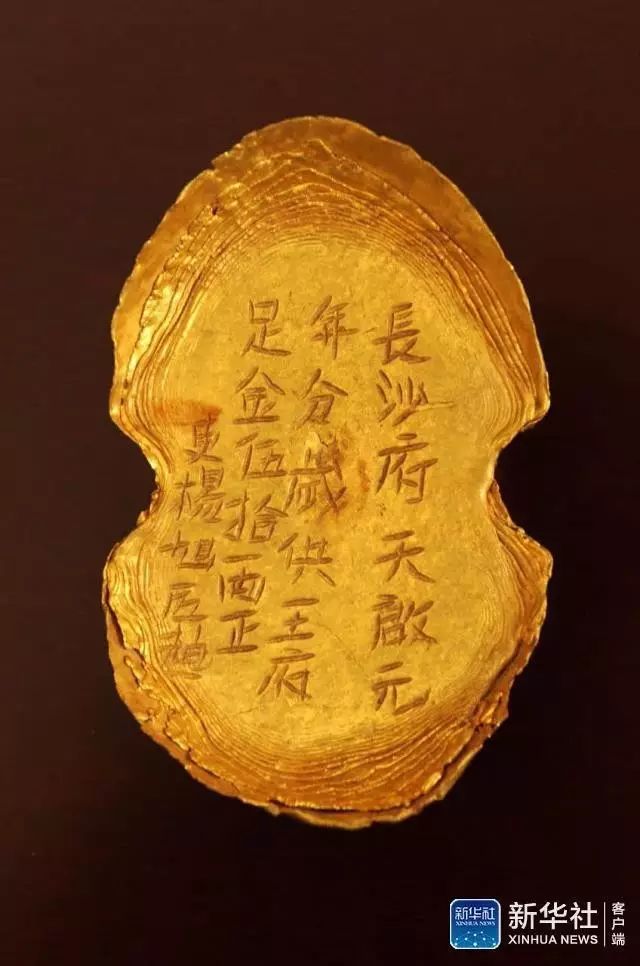 長沙府天啟元
年分歲供王府
足金伍拾两正
吏楊旭匠趙
新华社
XINHUA NEWS
新华社
XINHUA NEWS
客户端